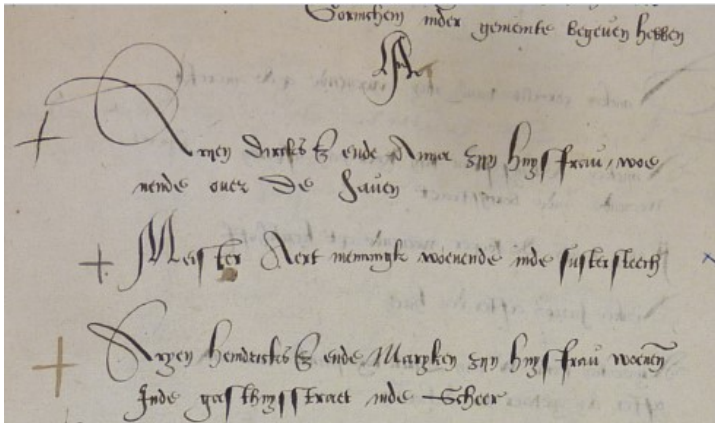 Gorinchem inder gemeinte begeven hebben
A
Aryen Dircks Z ende Anna zyn huysfrau, woe
nende over de haven
Meister Aert wonende inde susterstech
Aryen Hendricks Z ende Maryken zyn huysfrau woenen
Inde gasthuysstraet inde Scheer